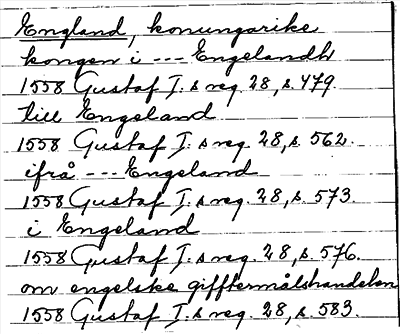 England, konungarike
kongen i --- Engelandh
1558 Gustaf I:s reg. 28, s. 479.
till Engeland
1558 Gustaf I:s reg. 28, s. 562.
ifrå --- Engeland
1558 Gustaf I:s reg. 28, s. 573.
i Engeland
1558 Gustaf I:s reg. 28, s. 576.
om engelske gifftermålshandelen
1558 Gustaf I:s reg. 28, s. 583.